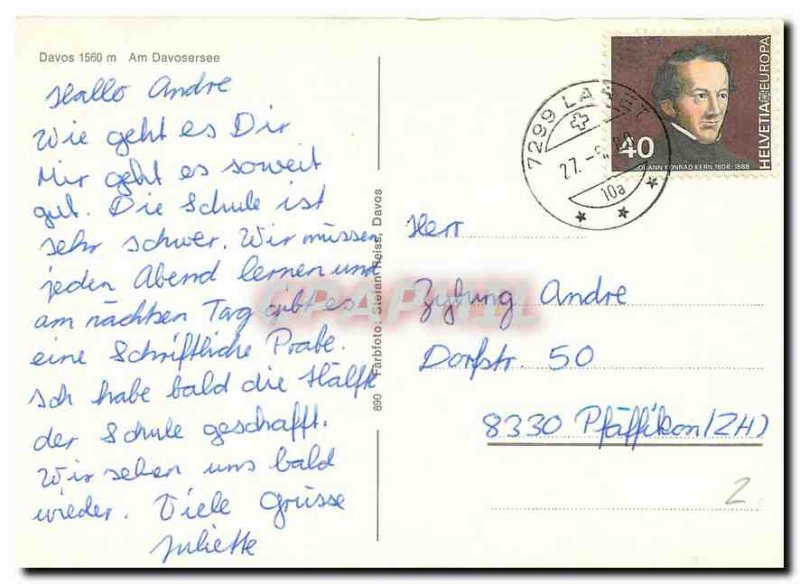 Davos 1560 m Am Davosersee
Hallo Andre
Wie geht es Dir
Mir geht es soweit
gut. Die Schule ist
sehr schwer. Wir müssen
jeden Abend lernen und
am nächsten Tag gibt es
eine Schriftliche Probe.
Ich habe bald die Hälft
der Schule geschafft.
Wir sehen uns bald
wieder. Viele Grüsse
Juliette
690 Farbfoto: Stefan Reiss, Davos
7299 LARET
27.
10a
40
JOHANN KONRAD KERN 1808-1888
HELVETIA EUROPA
Herr
Zylung Andre
Dorfstr. 50
8330 Pfäffikon (ZH)
2
CPAPHIL